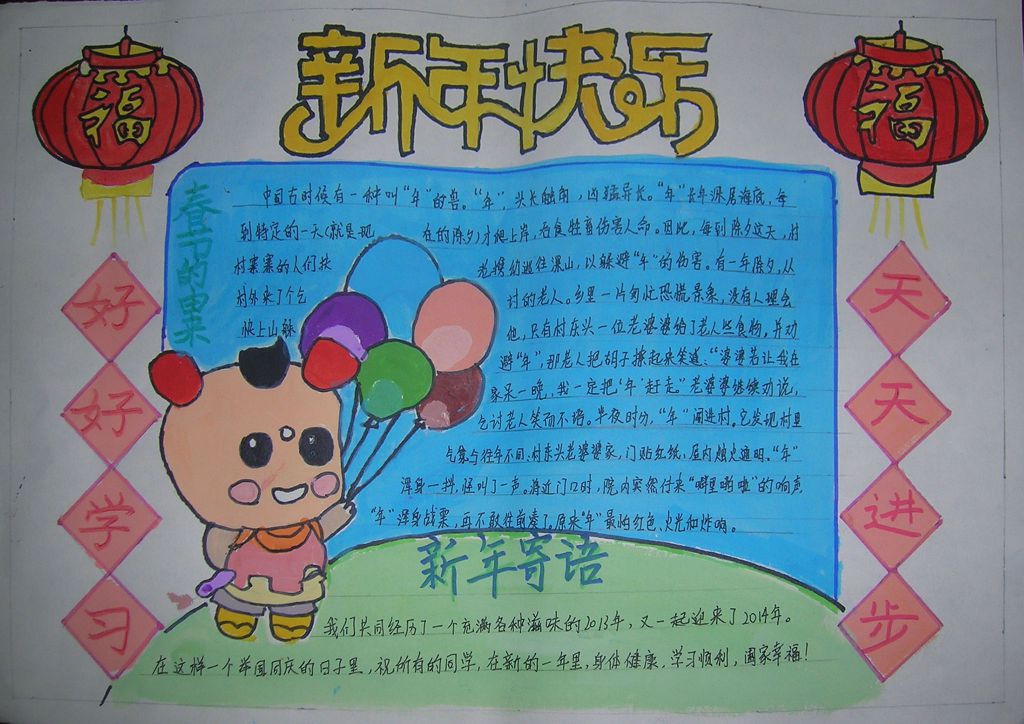 新年快乐
福
福
春节的由来
中国古时候有一种叫“年”的兽。“年”，头长触角，凶猛异长。“年”长年深居海底，每
到特定的一天（就是现 在的除夕）才爬上岸，吞食牲畜伤害人命。因此，每到除夕这天，村
村寨寨的人们扶 老携幼逃往深山，以躲避“年”的伤害。有一年除夕，从
村外来了个乞 讨的老人。乡里一片匆忙恐慌景象，没有人理会
他，只有村东头一位老婆婆给了老人些食物，并劝
快上山躲 避“年”，那老人把胡子撩起来笑道：“婆婆若让我在
家呆一晚，我一定把‘年’赶走。”老婆婆继续劝说，
乞讨老人笑而不语。半夜时分，“年”闯进村。它发现村里
气氛与往年不同：村东头老婆婆家，门贴红纸，屋内烛火通明。“年”
浑身一抖，怪叫了一声。将近门口时，院内突然传来“ ”的响声
“年”浑身战栗，再不敢往前凑了。原来“年”最怕红色、火光和炸响。
新年寄语
我们共同经历了一个充满各种滋味的2013年，又一起迎来了2014年。
在这样一个举国同庆的日子里，祝所有的同学，在新的一年里，身体健康，学习顺利，阖家幸福！
好
好
学
习
天
天
进
步